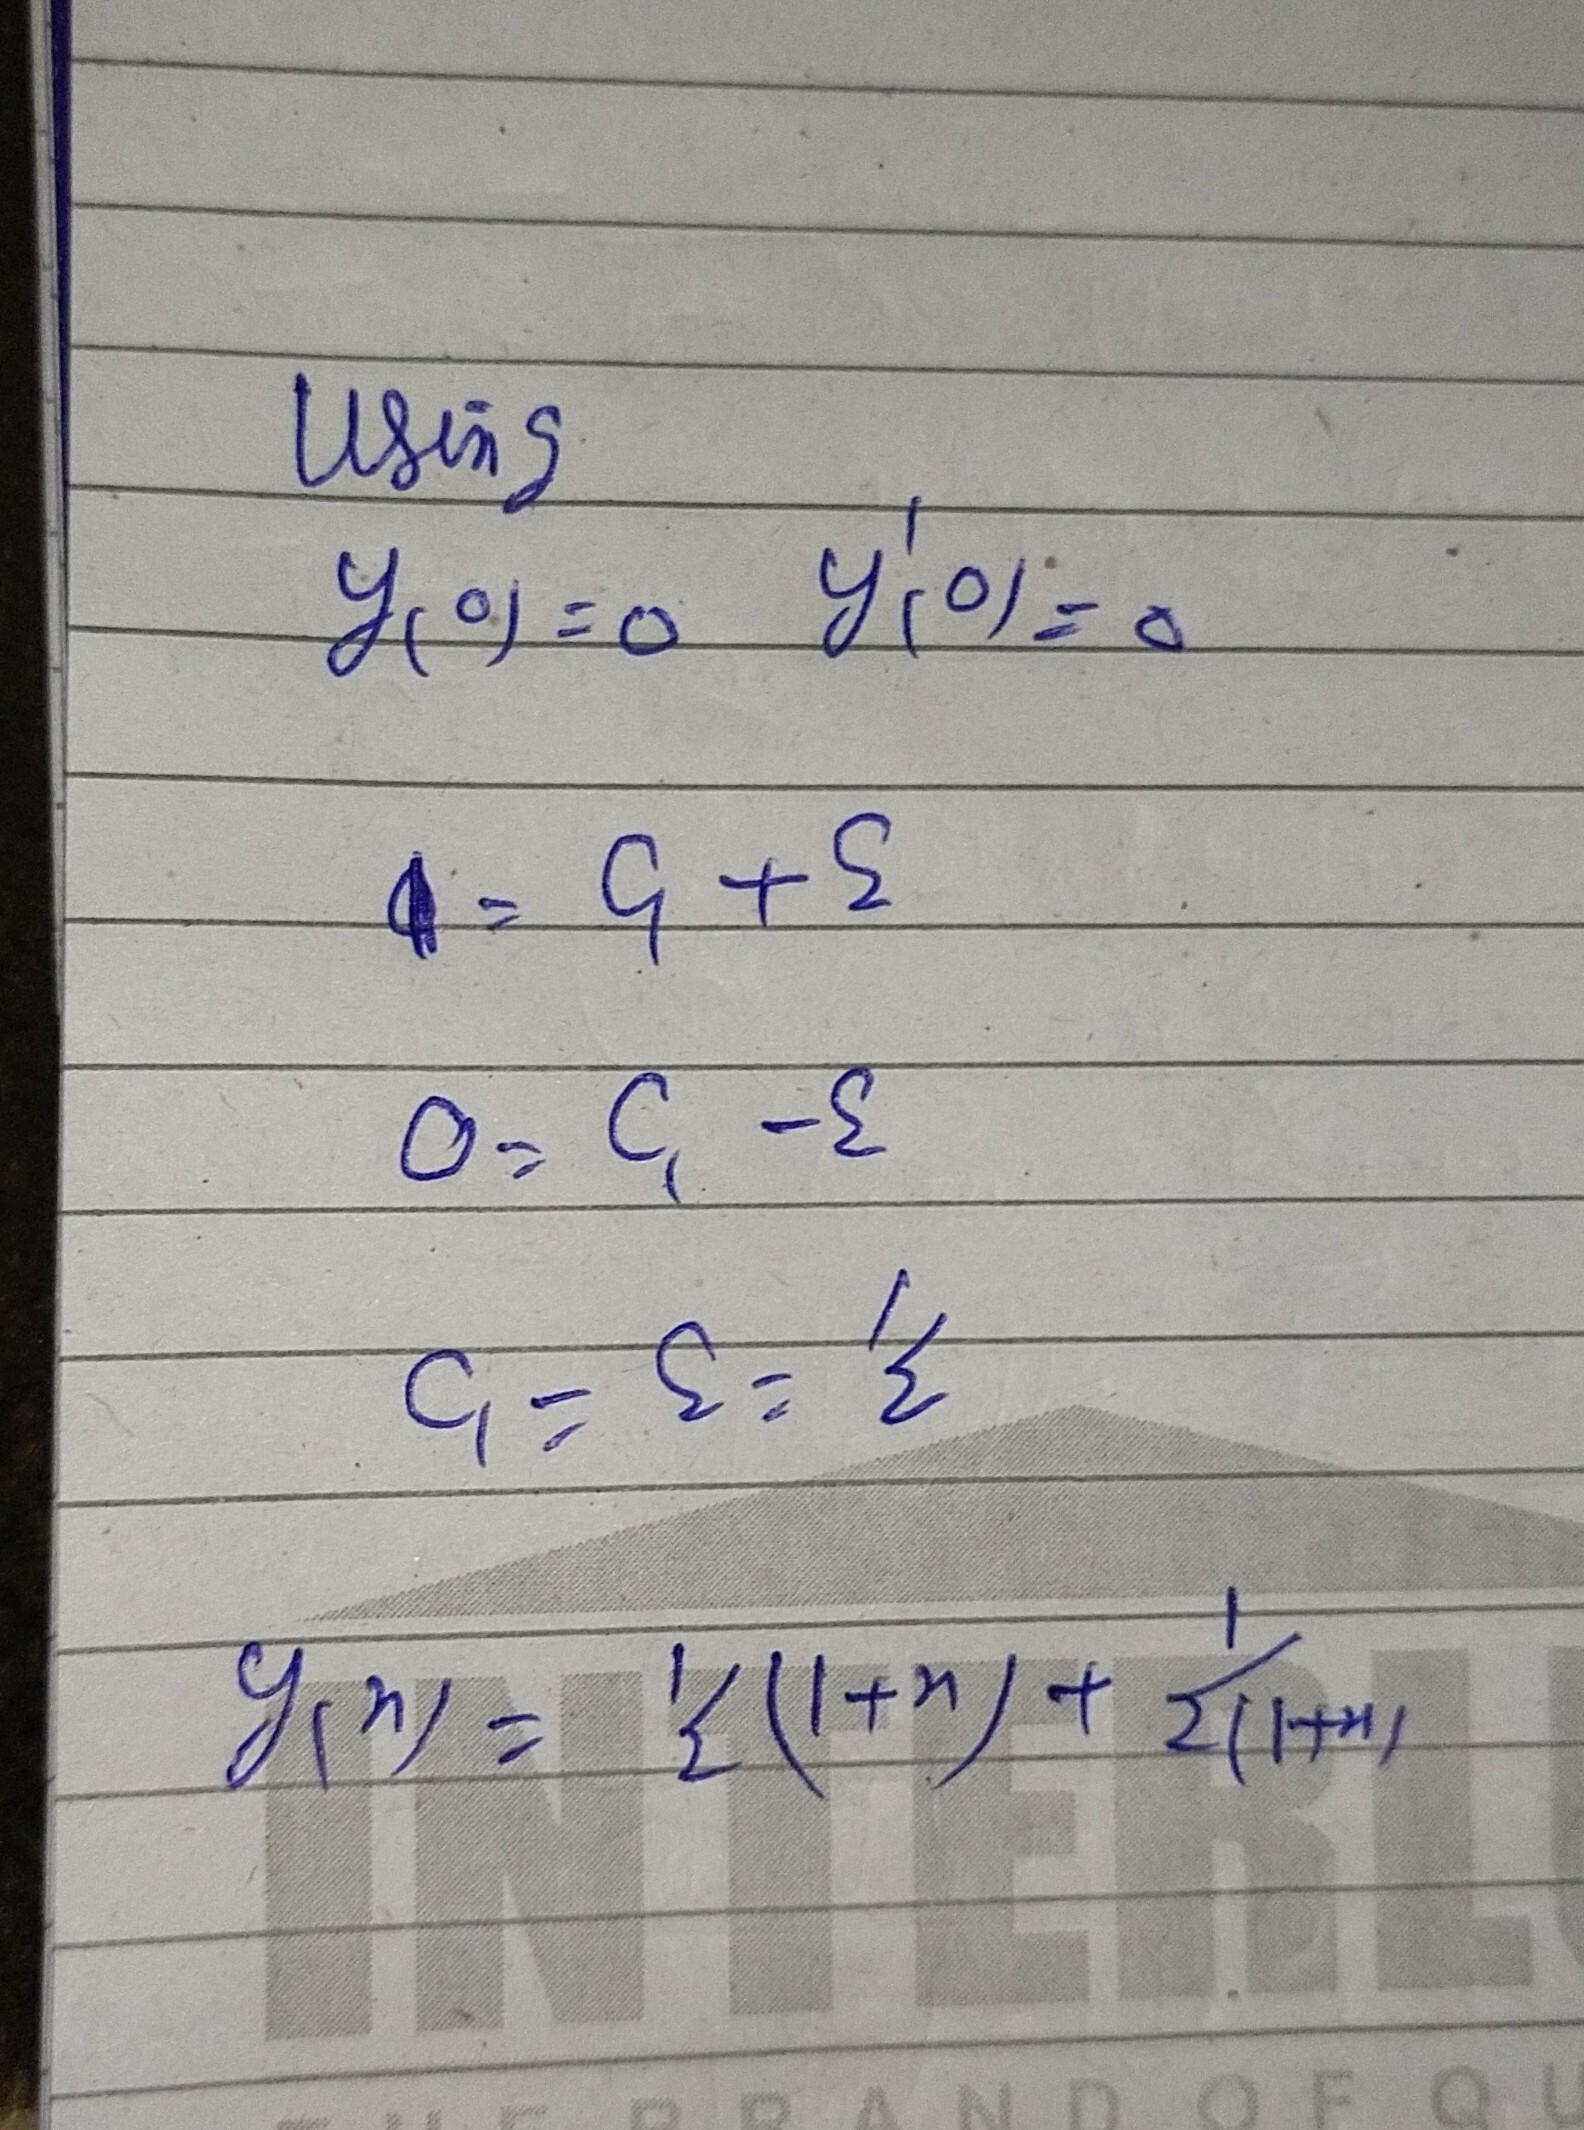 Using
y(0)=0 y'(0)=0
1 = C1 + C2
0 = C1 - C2
C1 = C2 = 1/2
y(x) = 1/2 (1+x) + 1/2(1+x)
INTERL
THE BRAND OF QU